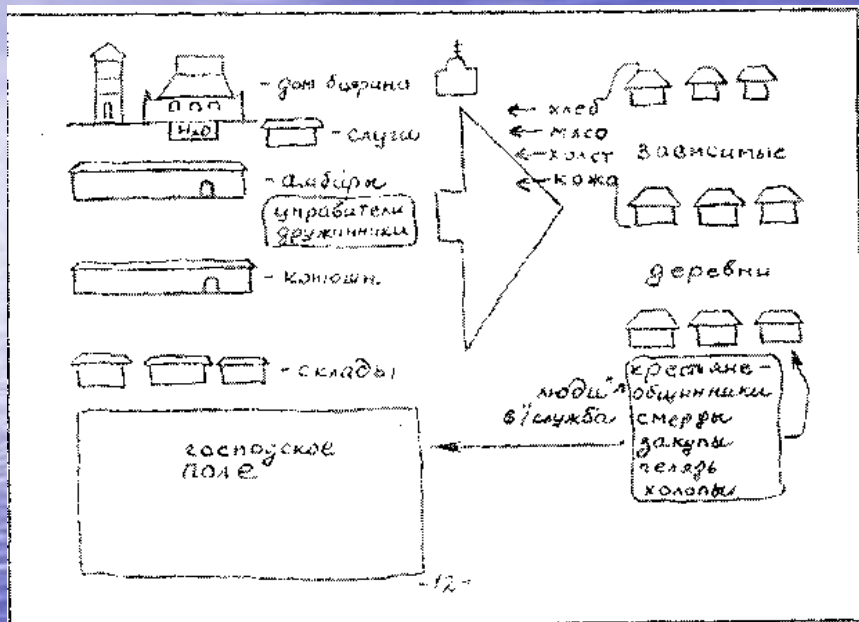 - дом боярина
H₂O
- слуги
- амбары
управители
дружинники
- конюшн.
- склады
господское
поле
← хлеб
← мясо
← холст
← кожа
зависимые
деревни
"люди"
в/служба
крестьяне-
общинники
смерды
закупы
челядь
холопы
-12-